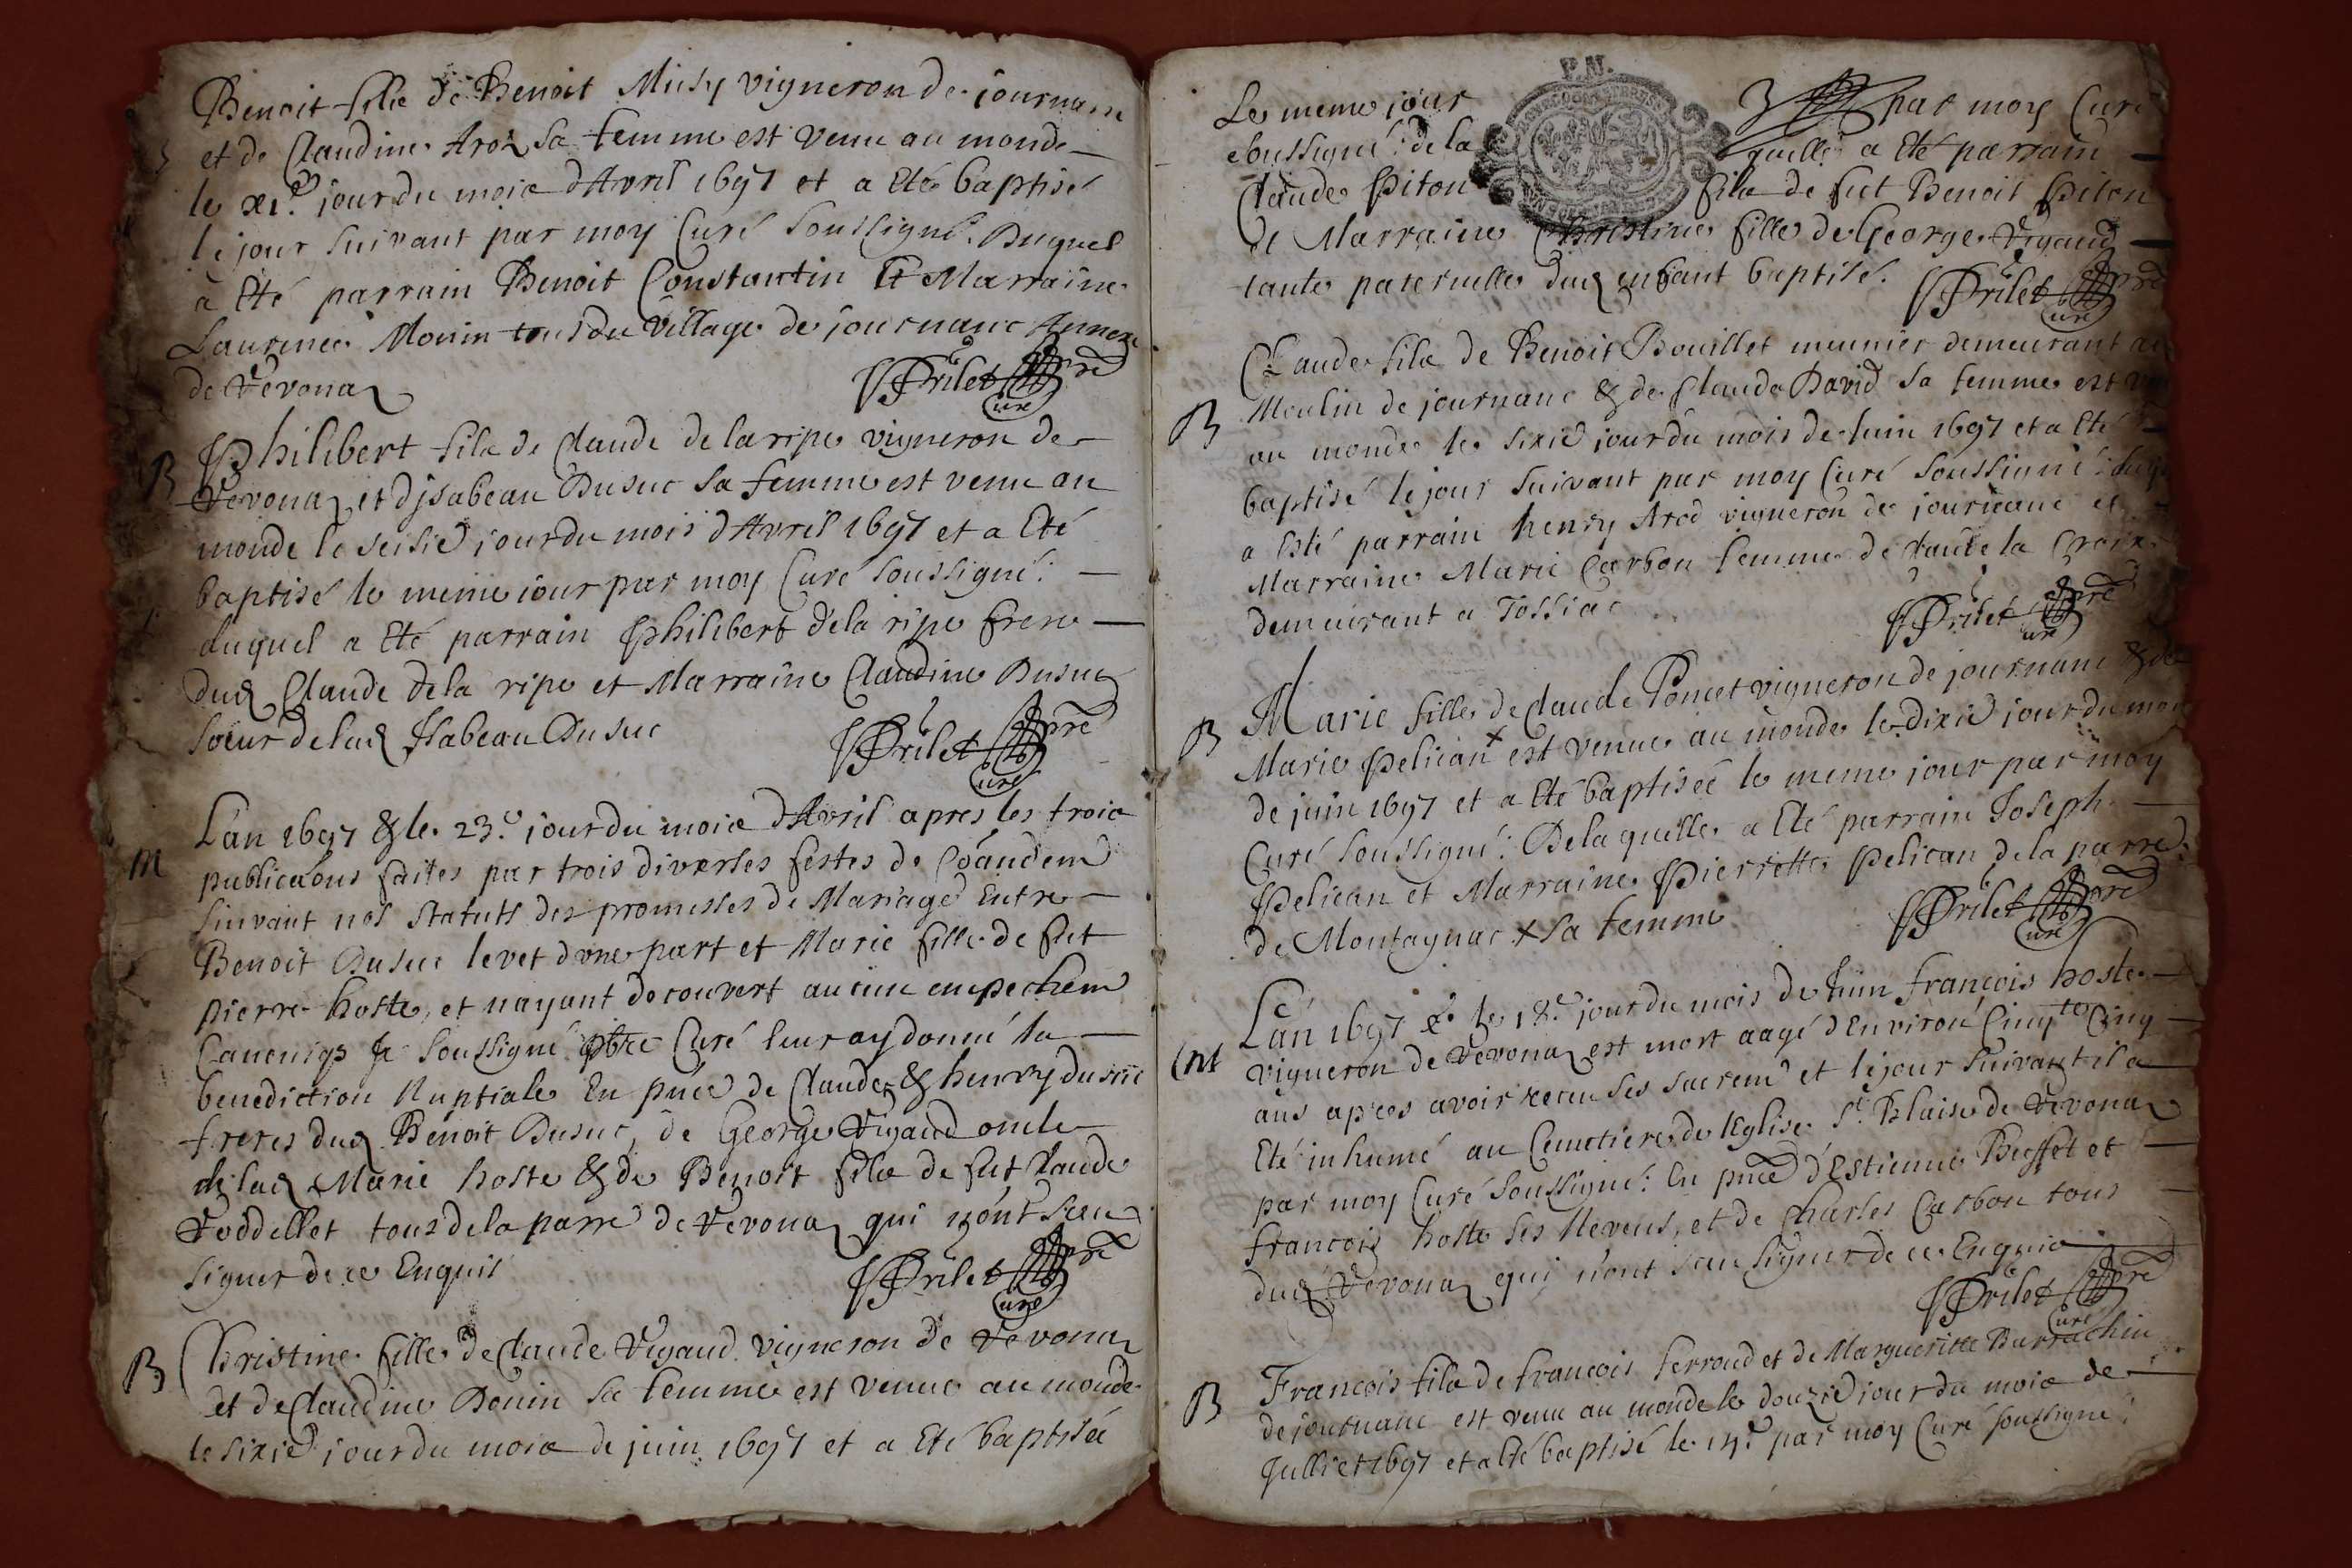 Benoit fils de Benoit Musy vigneron de journans
B et de Claudine Aroz sa femme est venu au monde
le xi.e jour du mois d'Avril 1697 et a Eté baptisé
le jour suivant par moy Curé soussigné. Duquel
a Eté parrain Benoit Constantin Et Marraine
Laurence Monin tous du village de journanc Annexe
de Revonaz
Prilet pre Curé
B Philibert fils de Claude de la ripe vigneron de
Revonaz et d'jsabeau Dusuc sa femme est venu au
monde le seisie jour du mois d'Avril 1697 et a Eté
baptisé le meme jour par moy Curé soussigné:
duquel a Eté parrain Philibert de la ripe frere
dud Claude de la ripe et Marraine Claudine Dusuc
soeur de lad Jsabeau Dusuc
Prilet pre Curé
M L'an 1697 & le 23.e jour du mois d'Avril apres les trois
publicaõns faites par trois diverses festes de Cõandem
suivant nos statuts des promesses de Mariage Entre
Benoit Dusuc levet d'vne part et Marie fille de fut
pierre hoste, et nayant decouvert aucun empechem
Canoniqs Je soussigné pbre Curé leur ay donné la
benediction Nuptiale En pnce de Claude & henry dusuc
freres dud Benoit Dusuc, de George Vigaud oncle
de lad Marie hoste & de Benoit fils de fut Claude
Voddellet tous de la parre de Revonaz qui n'ont sceu
signer de ce Enquis
Prilet pre Curé
B Christine fille de Claude Vigaud vigneron de Revonaz
et de Claudine Donin sa femme est venue au monde
le sixie jour du mois de juin 1697 et a Eté baptisée
P.N.
3
Le meme jour par moy Curé
soussigné: de la quelle a Eté parrain
Claude Piton fils de fut Benoit Piton
et Marraine Christine fille de George Vigaud
tante paternelle dud enfant baptisé.
Prilet pre Curé
Claude fils de Benoit Bouillet meunier demeurant au
B Moulin de journanc & de Claude David sa femme est
au monde le sixie jour du mois de Juin 1697 et a Eté
baptisé le jour suivant par moy Curé soussigné:
a Esté parrain henry Arod vigneron de journanc et
Marraine Marie Carbon femme de Claude la Croix
demeurant a Tossiac
Prilet pre Curé
B Marie fille de Claude Poncet vigneron de journanc & de
Marie Pelican x est venue au monde le dixie jour du mois
de juin 1697 et a Eté baptisée le meme jour par moy
Curé soussigné: De la quelle a Eté parrain Joseph
Pelican et Marraine Pierrette Pelican de la parre
de Montagnac x sa femme
Prilet pre Curé
L'an 1697 & le 18.e jour du mois de Juin françois hoste
Ent vigneron de Revonaz est mort aagé d'Environ Cinqte Cinq
ans apres avoir receu ses sacrem et le jour suivant il a
Eté inhumé au Cemetiere de l'Eglise St. Blaise de Revonaz
par moy Curé soussigné: En pnce d'Estienne Buffet et
françois hoste ses Neveus, et de Charles Carbon tous
dud Revonaz qui n'ont sceu signer de ce Enquis
Prilet pre Curé
B François fils de françois ferroud et de Margueritte Burrachin
de journanc est venu au monde le douzie jour du mois de
Julliet 1697 et a Eté baptisé le par moy Curé soussigné: